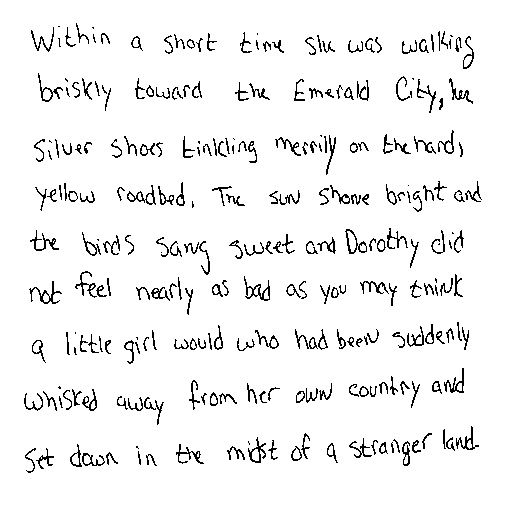 Within a short time she was walking
briskly toward the Emerald City, her
Silver Shoes tinkling merrily on the hard,
yellow roadbed. The sun shone bright and
the birds sang sweet and Dorothy did
not feel nearly as bad as you may think
a little girl would who had been suddenly
whisked away from her own country and
set down in the midst of a stranger land.